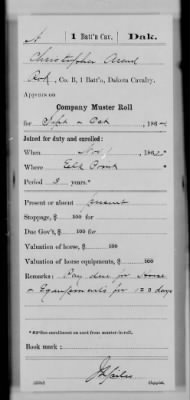 A | 1 Batt'n Cav. | Dak.
Christopher Arend
, Co. B, 1 Batt'n, Dakota Cavalry.
Appears on
Company Muster Roll
for Sept & Oct, 186
Joined for duty and enrolled:
When Nov 1, 186
Where Elk Point
Period 3 years.*
Present or absent Present
Stoppage, $ 100 for
Due Gov't, $ 100 for
Valuation of horse, $ 100
Valuation of horse equipments, $ 100
Remarks: Pay due for Horse
& Equipments for 123 days
*See enrollment on card from muster-in roll.
Book mark:
Copyist.